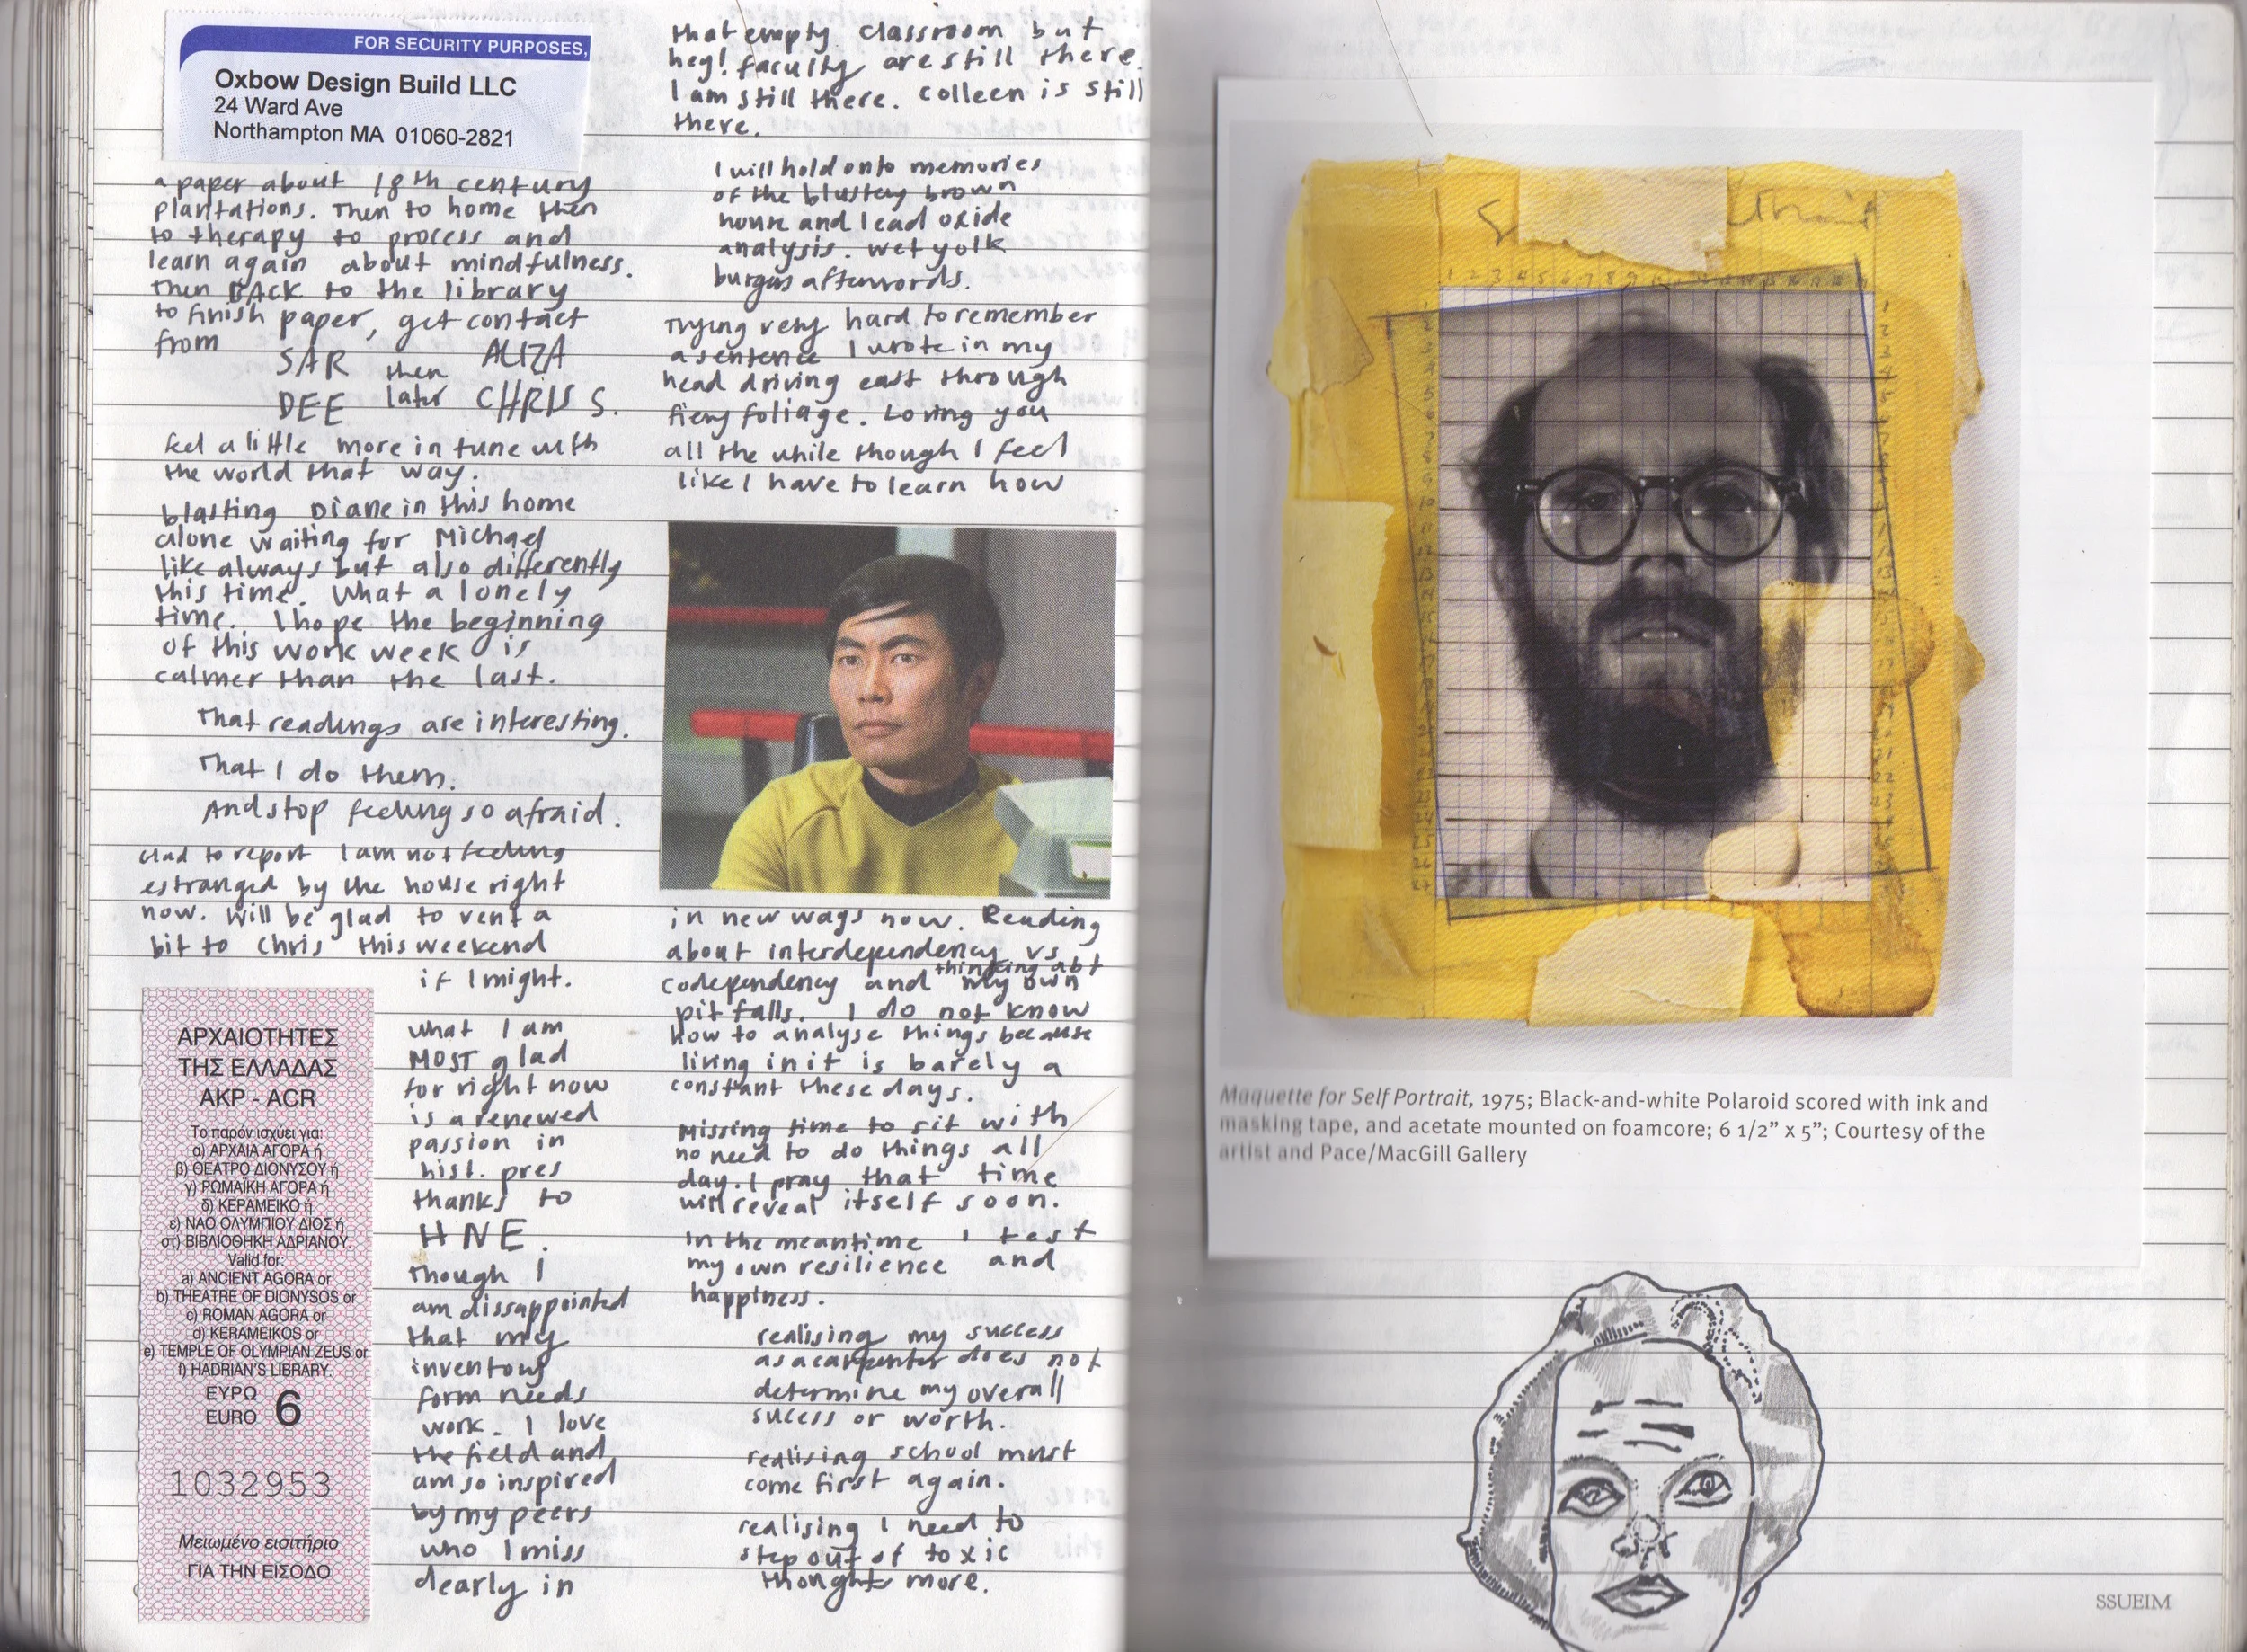 FOR SECURITY PURPOSES,
Oxbow Design Build LLC
24 Ward Ave
Northampton MA 01060-2821
a paper about 18th century
plantations. Then to home then
to therapy to process and
learn again about mindfulness.
Then BACK to the library
to finish paper, get contact
from
SAR then ALIZA
DEE later CHRIS S.
feel a little more in tune with
the world that way.
blasting Diane in this home
alone waiting for Michael
like always but also differently
this time. What a lonely
time. I hope the beginning
of this work week is
calmer than the last.
That readings are interesting.
That I do them.
And stop feeling so afraid.
Glad to report I am not feeling
estranged by the house right
now. Will be glad to vent a
bit to Chris this weekend
if I might.
ΑΡΧΑΙΟΤΗΤΕΣ
ΤΗΣ ΕΛΛΑΔΑΣ
ΑΚΡ - ACR
Το παρόν ισχύει για:
α) ΑΡΧΑΙΑ ΑΓΟΡΑ ή
β) ΘΕΑΤΡΟ ΔΙΟΝΥΣΟΥ ή
γ) ΡΩΜΑΪΚΗ ΑΓΟΡΑ ή
δ) ΚΕΡΑΜΕΙΚΟ ή
ε) ΝΑΟ ΟΛΥΜΠΙΟΥ ΔΙΟΣ ή
στ) ΒΙΒΛΙΟΘΗΚΗ ΑΔΡΙΑΝΟΥ.
Valid for:
a) ANCIENT AGORA or
b) THEATRE OF DIONYSOS or
c) ROMAN AGORA or
d) KERAMEIKOS or
e) TEMPLE OF OLYMPIAN ZEUS or
f) HADRIAN'S LIBRARY.
ΕΥΡΩ
EURO 6
1032953
Μειωμένο εισιτήριο
ΓΙΑ ΤΗΝ ΕΙΣΟΔΟ
what I am
MOST glad
for right now
is a renewed
passion in
hist. pres
thanks to
HNE.
Though I
am dissappointed
that my
inventory
form needs
work. I love
the field and
am so inspired
by my peers
who I miss
dearly in
that empty classroom but
hey! faculty are still there.
I am still there. Colleen is still
there.
I will hold onto memories
of the blustery brown
house and lead oxide
analysis. wet yolk
burgers afterwords.
Trying very hard to remember
a sentence I wrote in my
head driving east through
fiery foliage. Loving you
all the while though I feel
like I have to learn how
in new ways now. Reading
about interdependency vs
codependency and thinking abt my own
pit falls. I do not know
how to analyse things because
living in it is barely a
constant these days.
Missing time to sit with
no need to do things all
day. I pray that time
will reveal itself soon.
In the meantime I test
my own resilience and
happiness.
realising my success
as a carpenter does not
determine my overall
sucess or worth.
realising school must
come first again.
realising I need to
step out of toxic
thoughts more.
Maquette for Self Portrait, 1975; Black-and-white Polaroid scored with ink and
masking tape, and acetate mounted on foamcore; 6 1/2" x 5"; Courtesy of the
artist and Pace/MacGill Gallery
SSUEIM